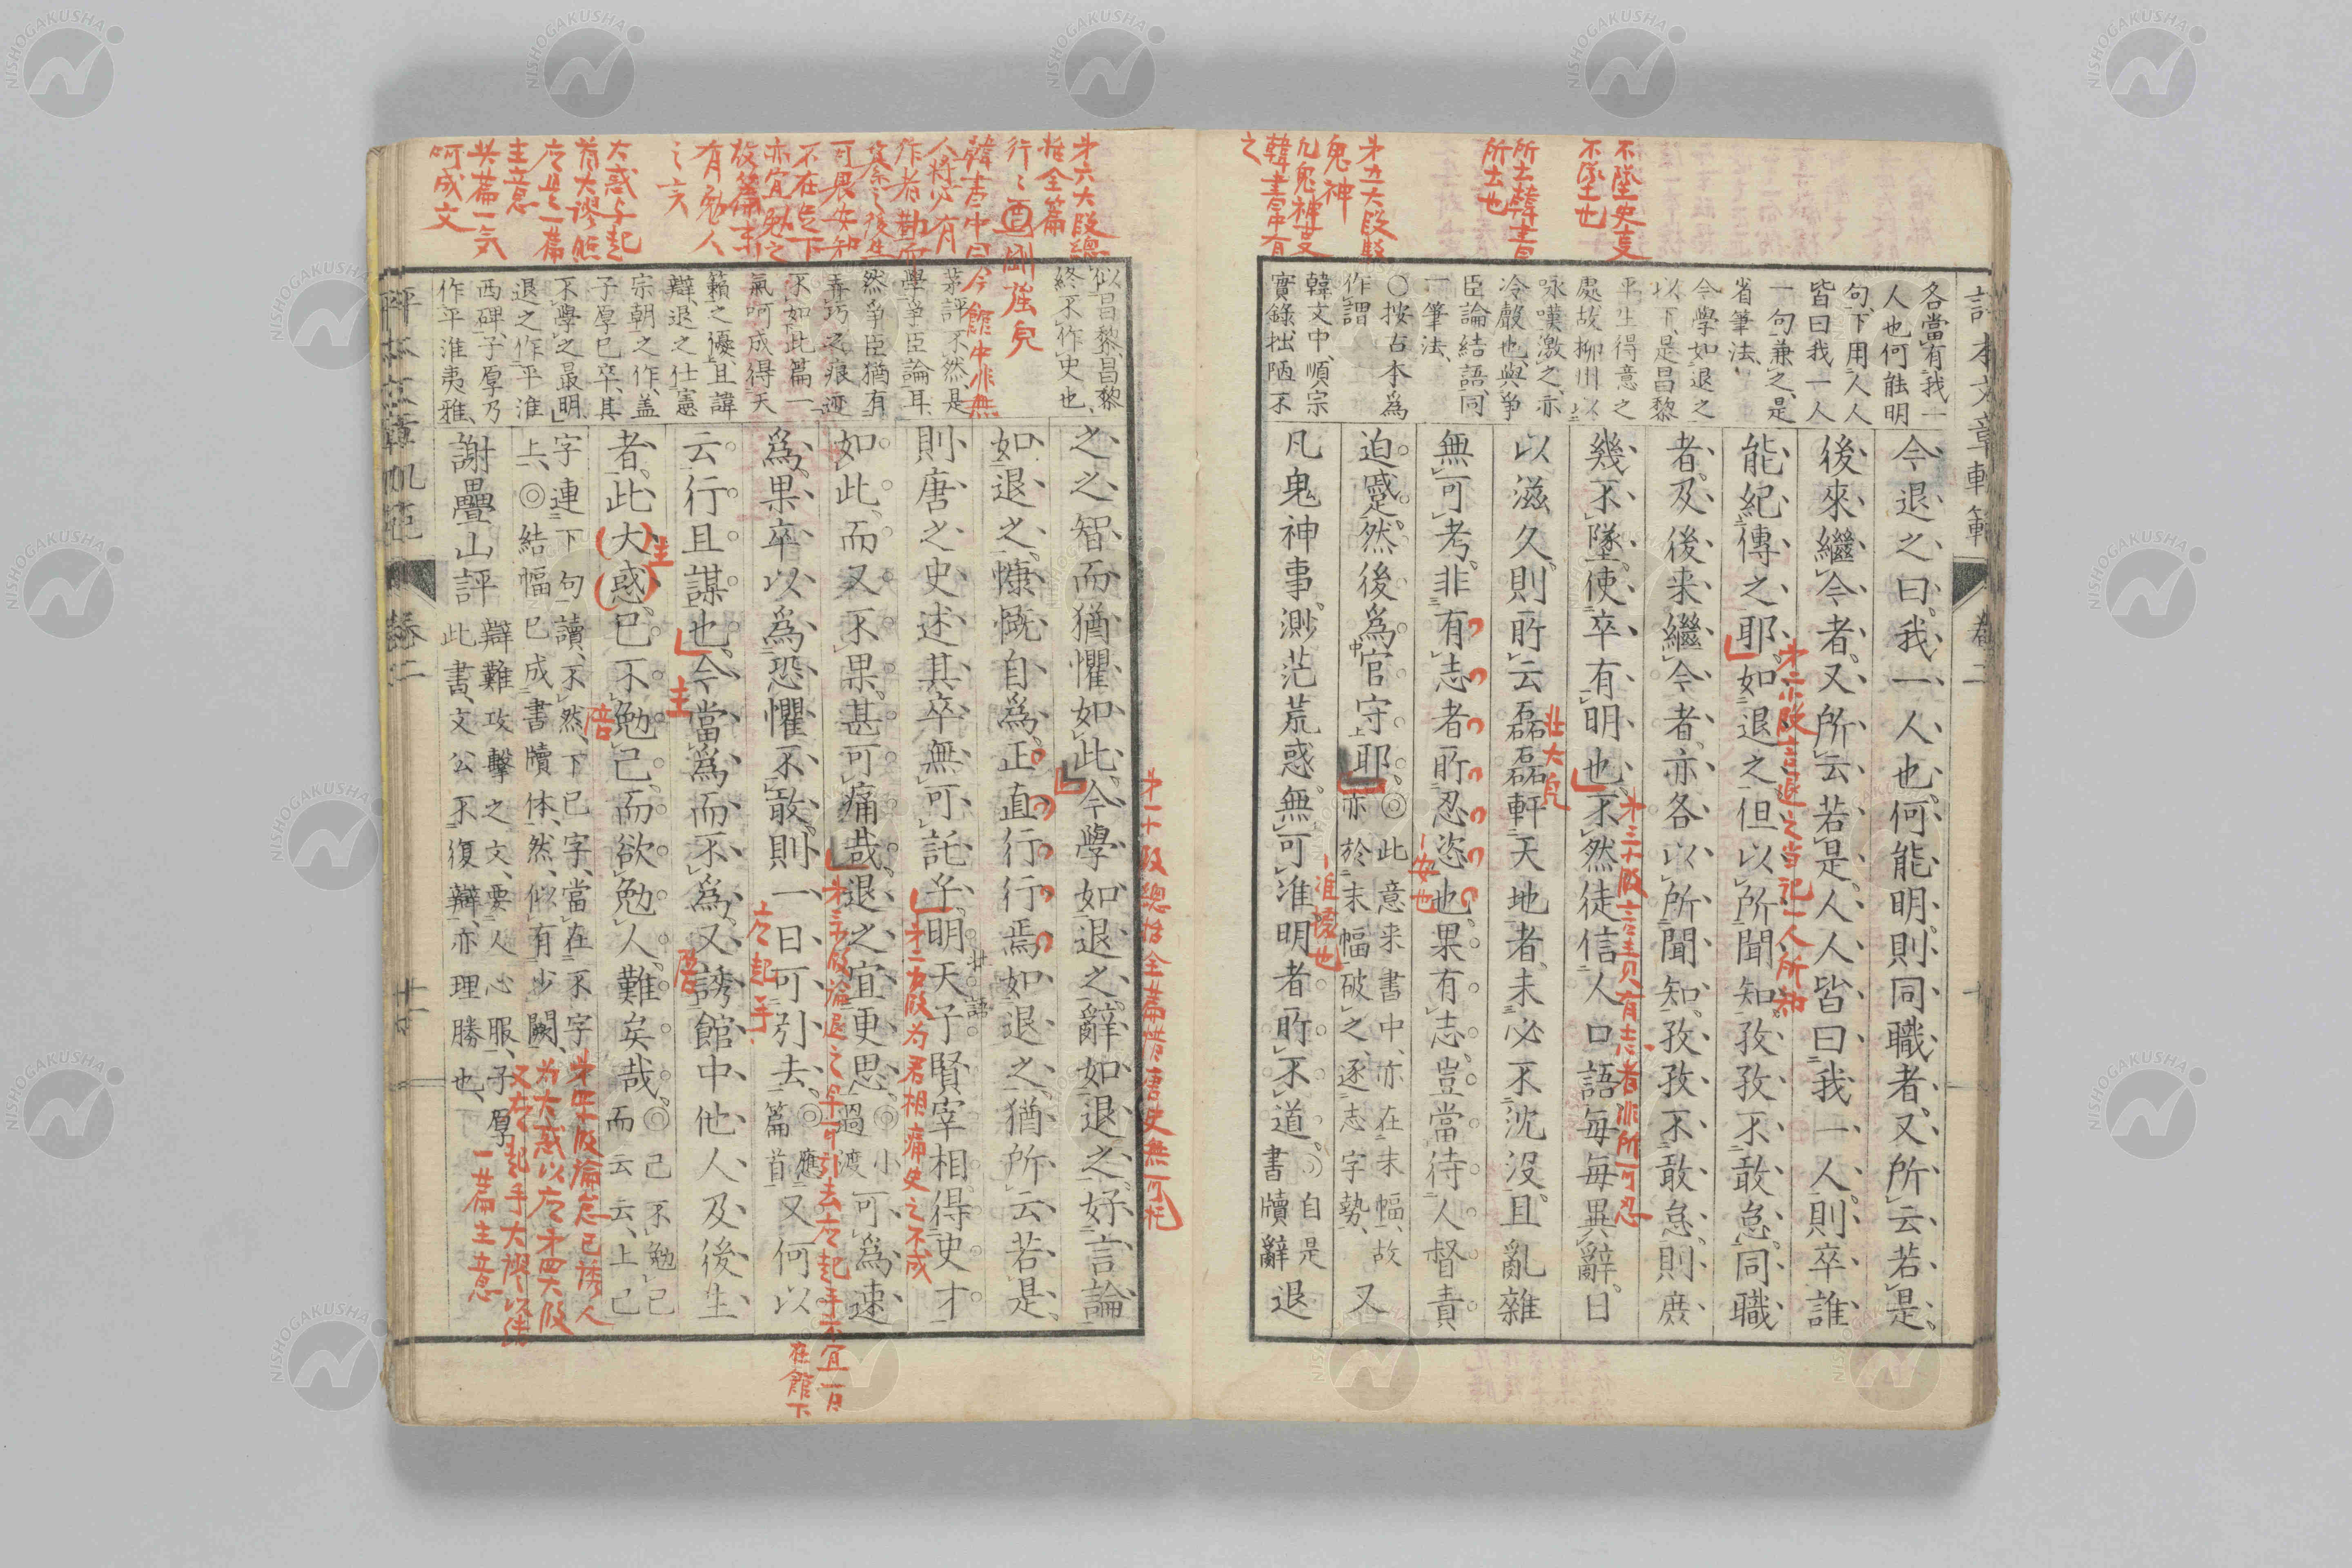 不墜史支
不墜也
所士韓書
所士也
鬼神
韓書中有
之
各當有我一
人也何能明
句下用人人
皆曰我一人
一句兼之是
省筆法
今學如退之
以下是昌黎
平生得意之
處故柳州以
咏嘆激之亦
冷劇也與爭
臣論結語同
一筆法
○按古本為
作謂
韓文中順宗
實錄拙陋不
今退之曰我一人也何能明則同職者又所云若是
後來繼今者又所云若是人人皆曰我一人則卒誰
能紀傳之耶如退之但以所聞知孜孜不敢怠同職
者及後来繼今者亦各以所聞知孜孜不敢怠則庶
幾不墜使卒有明也不然徒信人口語每每異辭日
以滋久則所云磊磊軒天地者未必不沈沒且亂雜
無可考非有志者所忍恣也果有志豈當待人督責
迫蹙然後為官守耶◎此意来書中亦在末幅故
亦於末幅破之逐志字勢又
凡鬼神事渺茫荒惑無可准明者所不道◎自是
書牘辭退
第二小段言退之当記一人所知
第三小段言責貝有志者非所可忍
壯大皃
安也
准據也
第六大段總
括全篇
行行 剛強皃
韓書中曰今館中非無
人將必有
作者勤而
亦宜勉之
有勉人
之言
大惑字起
主意
共篇一氣
呵成文
似昌黎昌黎
終不作史也
茅評不然是
學爭臣論耳
然爭臣猶有
弄巧之痕迹
不如此篇一
氣呵成得天
籟之優且諱
辯退之仕憲
宗朝之作蓋
子厚巳卒其
不學之最明
退之作平淮
西碑子厚乃
作平淮夷雅
之之智而猶懼如此今學如退之辭如退之好言論
如退之慷慨自為正直行行焉如退之猶所云若是
則唐之史述其卒無可託乎明天子賢宰相得史才
如此而又不果甚可痛哉退之宜更思◎小過渡可為速
為果卒以為恐懼不敢則一日可引去◎應篇首又何以
云行且謀也今當為而不為又誘館中他人及後生
者此大惑巳不勉己而欲勉人難矣哉◎己不勉已
而云云上己
字連下句讀不然下已字當在不字
上◎結幅已成書牘体然似有少闕
謝疊山評 辯難攻擊之文要人心服子厚
此書文公不復辯亦理勝也
第一小段總括全篇惜唐史無可托
第二小段为君相痛史之不成
第三小段論退之早可引去應起手不宜一日
在館下
應起手
主
主
陪
陪
第四小段論忘已誘人
为大惑以應第四大段
又應起手大謬以結
一篇主意
卷二